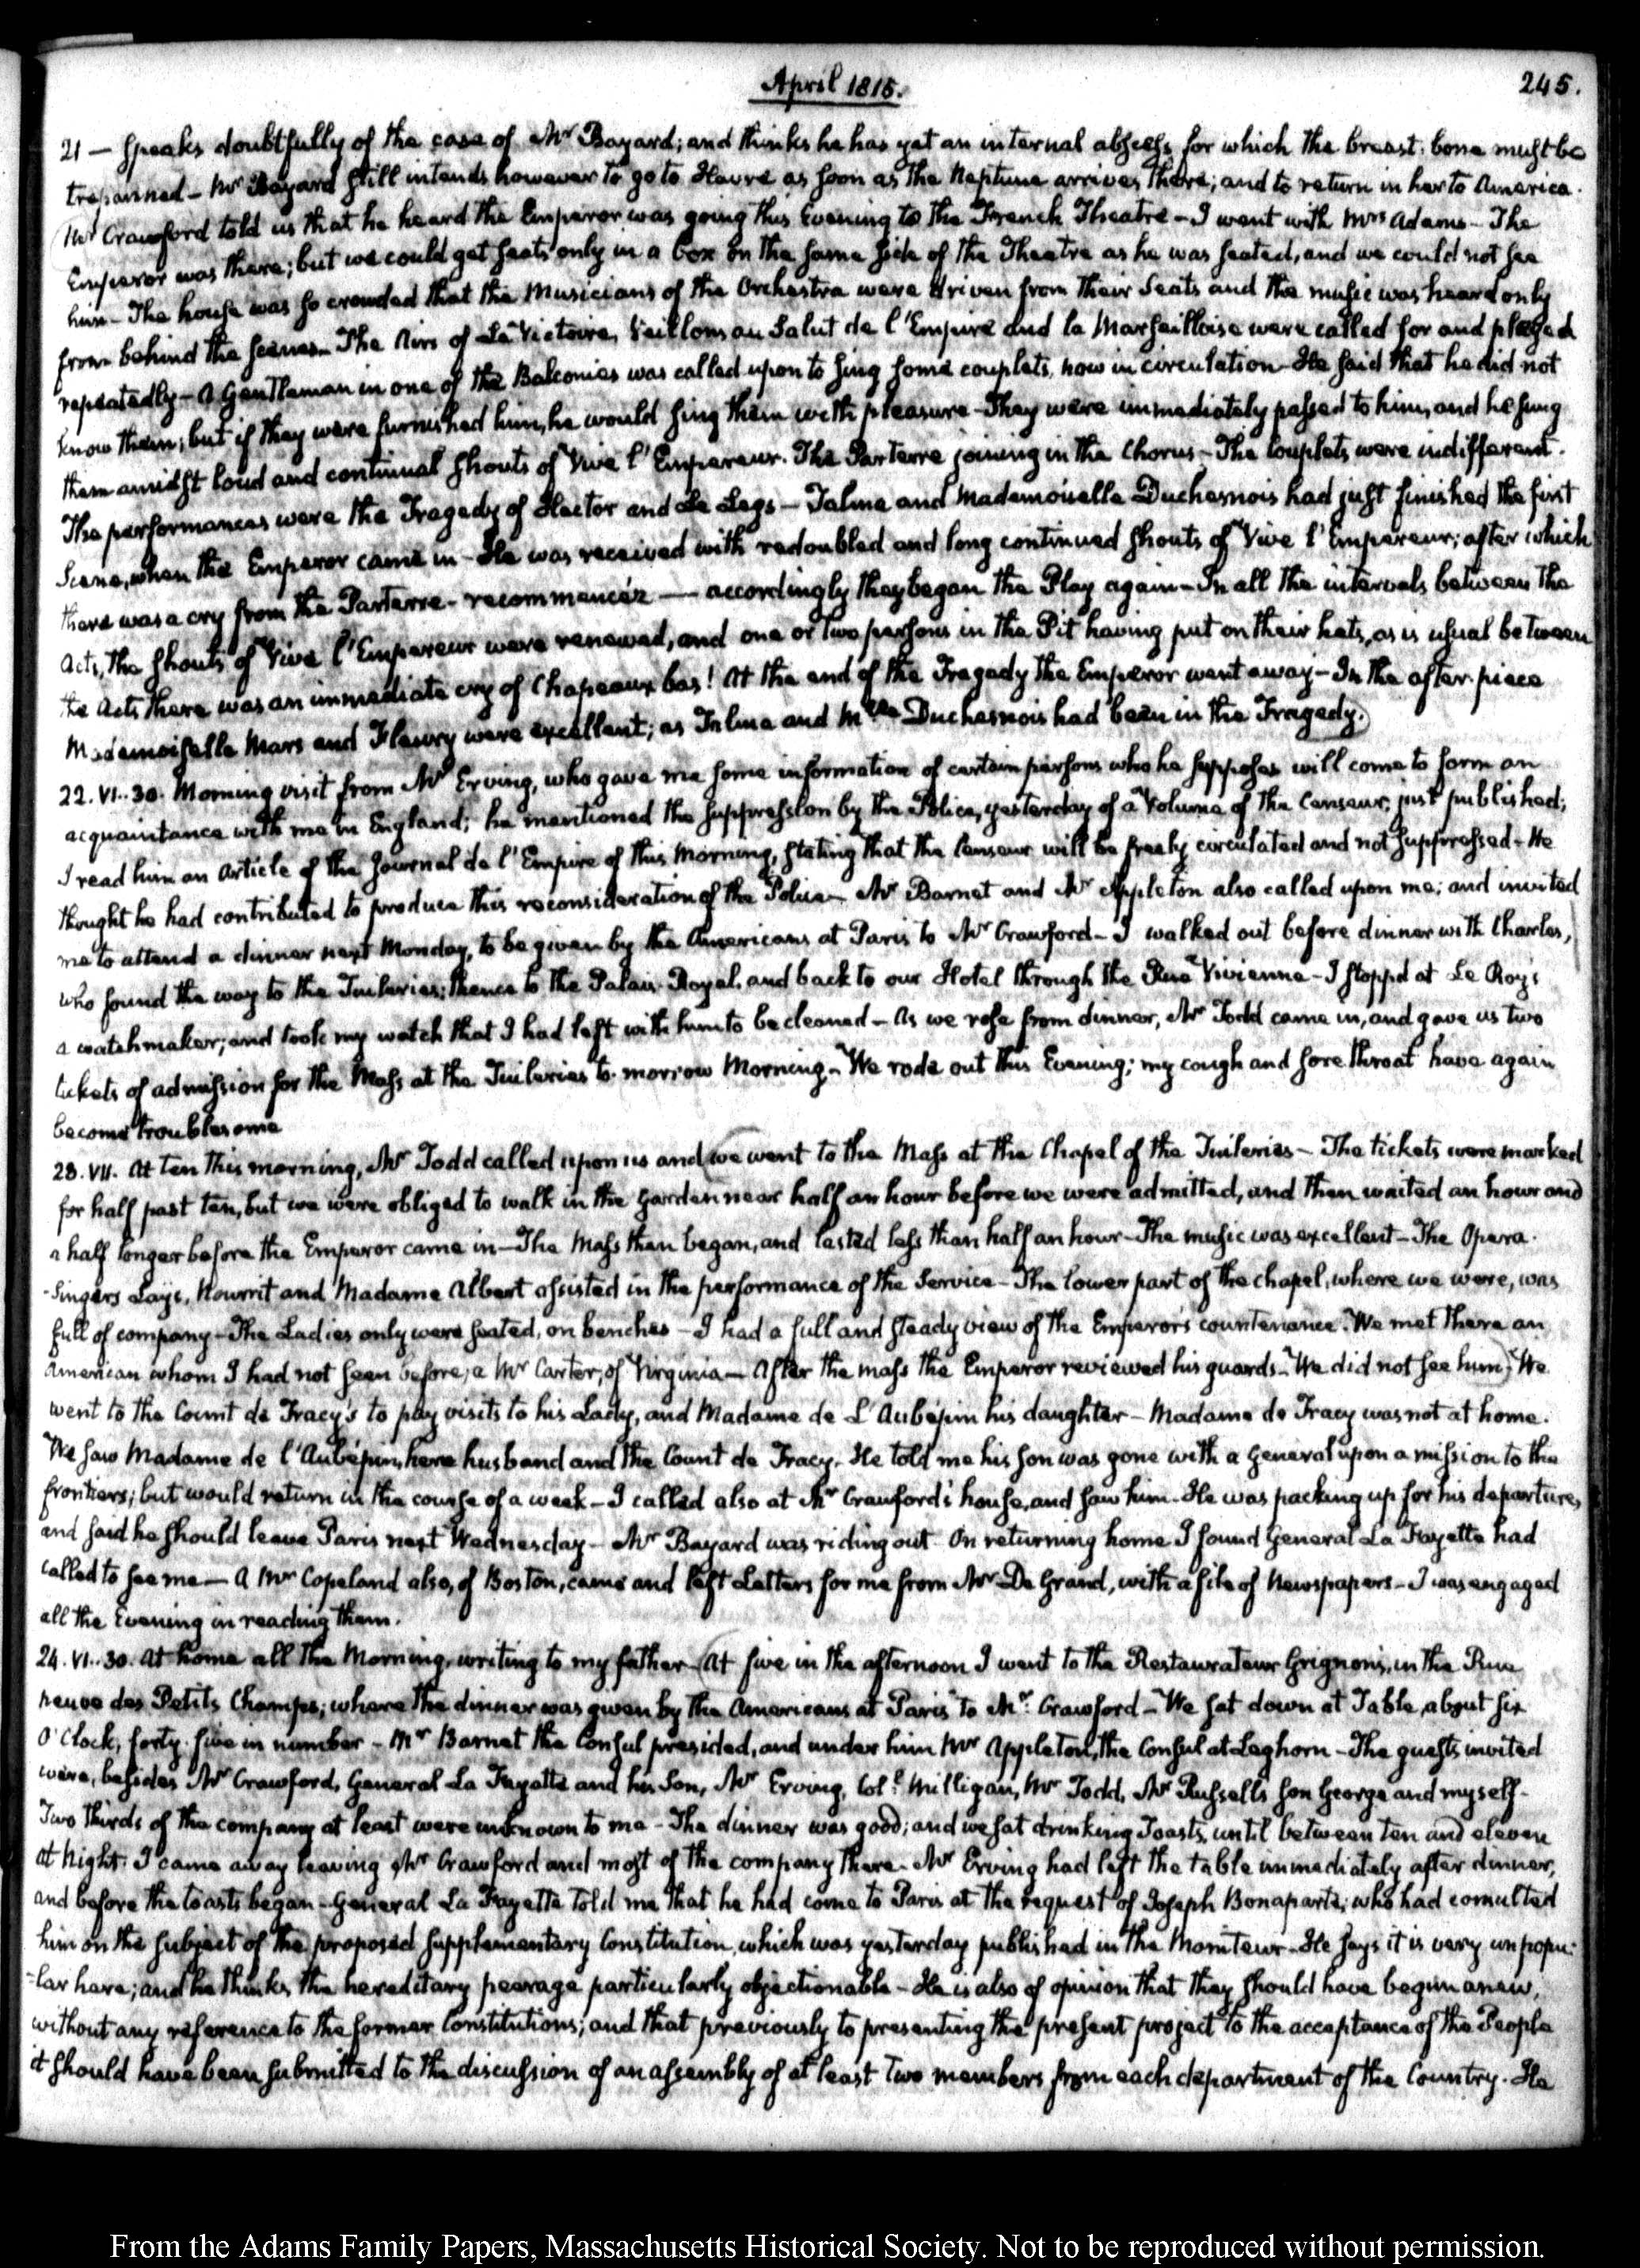 April 1815.
245.
21 — speaks doubtfully of the case of Mr Bayard; and thinks he has yet an internal abscess for which the breast-bone must be
trepanned — Mr Bayard still intends however to go to Havre as soon as the Neptune arrives there; and to return in her to America.
Mr Crawford told us that he heard the Emperor was going this Evening to the French Theatre — I went with Mrs Adams — The
Emperor was there; but we could get seats only in a box on the same side of the Theatre as he was seated, and we could not see
him — The house was so crowded that the Musicians of the Orchestra were driven from their Seats and the music was heard only
from behind the scenes — The Airs of La Victoire, Veillons au Salut de l'Empire and la Marseilloise were called for and played
repeatedly — A Gentleman in one of the Balconies was called upon to sing some couplets, now in circulation — He said that he did not
know them; but if they were furnished him, he would sing them with pleasure — They were immediately passed to him, and he sung
them amidst loud and continual shouts of Vive l'Empereur. The Parterre joining in the Chorus — The Couplets were indifferent.
The performances were the Tragedy of Hector and Le Legs — Talma and Mademoiselle Duchesnois had just finished the first
Scene, when the Emperor came in — He was received with redoubled and long continued shouts of Vive l'Empereur; after which
there was a cry from the Parterre — recommencéz — accordingly they began the Play again — In all the intervals between the
Acts, the shouts of Vive l'Empereur were renewed, and one or two persons in the Pit having put on their hats, as is usual between
the Acts there was an immediate cry of Chapeaux bas! At the end of the Tragedy the Emperor went away — In the after-piece
Mademoiselle Mars and Fleury were excellent; as Talma and Mlle Duchesnois had been in the Tragedy.
22. VI..30. Morning visit from Mr Erving, who gave me some information of certain persons who he supposes will come to form an
acquaintance with me in England; he mentioned the suppression by the Police, yesterday of a Volume of the Censeur, just published;
I read him an Article of the Journal de l'Empire of this Morning, stating that the Censeur will be freely circulated and not suppressed — He
thought he had contributed to produce this reconsideration of the Police — Mr Barnet and Mr Appleton also called upon me; and invited
me to attend a dinner next Monday, to be given by the Americans at Paris to Mr Crawford — I walked out before dinner with Charles,
who found the way to the Tuileries; thence to the Palais-Royal, and back to our Hotel through the Rue Vivienne — I stopp'd at Le Roy's
a watchmaker; and took my watch that I had left with him to be cleaned — As we rose from dinner, Mr Todd came in, and gave us two
tickets of admission for the Mass at the Tuileries to-morrow Morning — We rode out this Evening; my cough and sore throat have again
become troublesome
23. VII. At ten this morning, Mr Todd called upon us and we went to the Mass at the Chapel of the Tuileries — The tickets were marked
for half past ten, but we were obliged to walk in the Garden near half an hour before we were admitted, and then waited an hour and
a half longer before the Emperor came in — The Mass then began, and lasted less than half an hour — The music was excellent — The Opera-
Singers Laÿs, Nourrit and Madame Albert assisted in the performance of the Service — The lower part of the chapel, where we were, was
full of company — The Ladies only were seated, on benches — I had a full and steady view of the Emperor's countenance. We met there an
American whom I had not seen before; a Mr Carter, of Virginia — After the mass the Emperor reviewed his guards — We did not see him — We
went to the Count de Tracy's to pay visits to his Lady, and Madame de L'Aubépin his daughter — Madame de Tracy was not at home.
We saw Madame de l'Aubépin, here husband and the Count de Tracy — He told me his son was gone with a General upon a mission to the
frontiers; but would return in the course of a week — I called also at Mr Crawford's house, and saw him — He was packing up for his departure,
and said he should leave Paris next Wednesday — Mr Bayard was riding out — On returning home I found General La Fayette had
called to see me — A Mr Copeland also, of Boston, came and left Letters for me from Mr De Grand, with a file of Newspapers — I was engaged
all the Evening in reading them.
24. VI..30. At home all the Morning, writing to my father — At five in the afternoon I went to the Restaurateur Grignon's, in the Rue
neuve des Petits Champs; where the dinner was given by the Americans at Paris to Mr. Crawford — We sat down at Table about six
O'Clock, forty-five in number — Mr Barnet the Consul presided, and under him Mr Appleton, the Consul at Leghorn — The guests invited
were, besides Mr Crawford, General La Fayette and his Son, Mr Erving, Coll Milligan, Mr Todd, Mr Russell's son George and myself —
Two thirds of the company at least were unknown to me — The dinner was good; and we sat drinking Toasts, until between ten and eleven
at Night. I came away leaving Mr Crawford and most of the company there — Mr Erving had left the table immediately after dinner,
and before the toasts began — General La Fayette told me that he had come to Paris at the request of Joseph Bonaparte; who had consulted
him on the subject of the proposed supplementary Constitution, which was yesterday published in the Moniteur — He says it is very unpopu-
-lar here; and he thinks the hereditary peerage particularly objectionable — He is also of opinion that they should have begun anew,
without any reference to the former Constitutions; and that previously to presenting the present project to the acceptance of the People
it should have been submitted to the discussion of an assembly of at least two members from each department of the Country. He
From the Adams Family Papers, Massachusetts Historical Society. Not to be reproduced without permission.